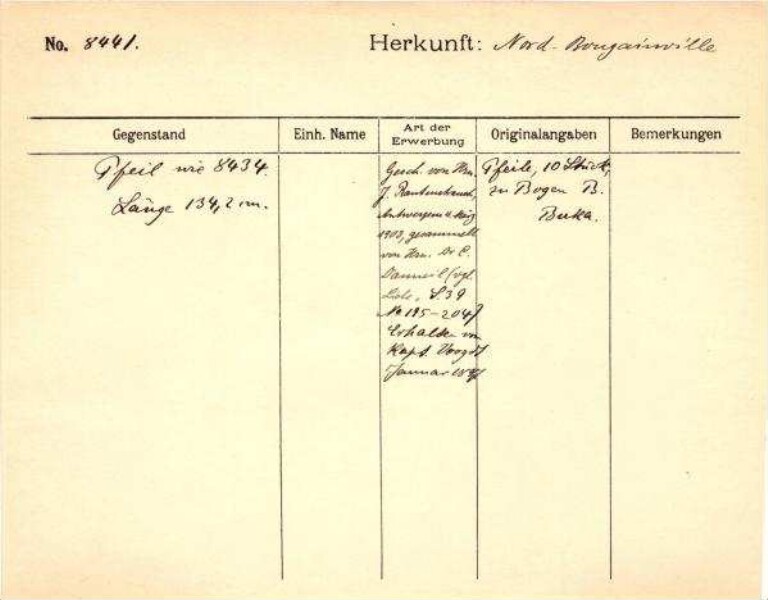 No. 8441.
Herkunft: Nord-Bougainville
Gegenstand
Einh. Name
Art der Erwerbung
Originalangaben
Bemerkungen
Pfeil wie 8434.
Länge 134,2 cm.
Gesch. von Hrn.
J. Rautenstrauch,
Antwerpen
1903, gesammelt
von Hrn. Dr C.
Danneil (vgl.
Liste, S. 39
No 195-204)
Erhalten von
Kapt. Voogdt
Januar
Pfeile, 10 Stück,
zu Bogen B.
Buka.